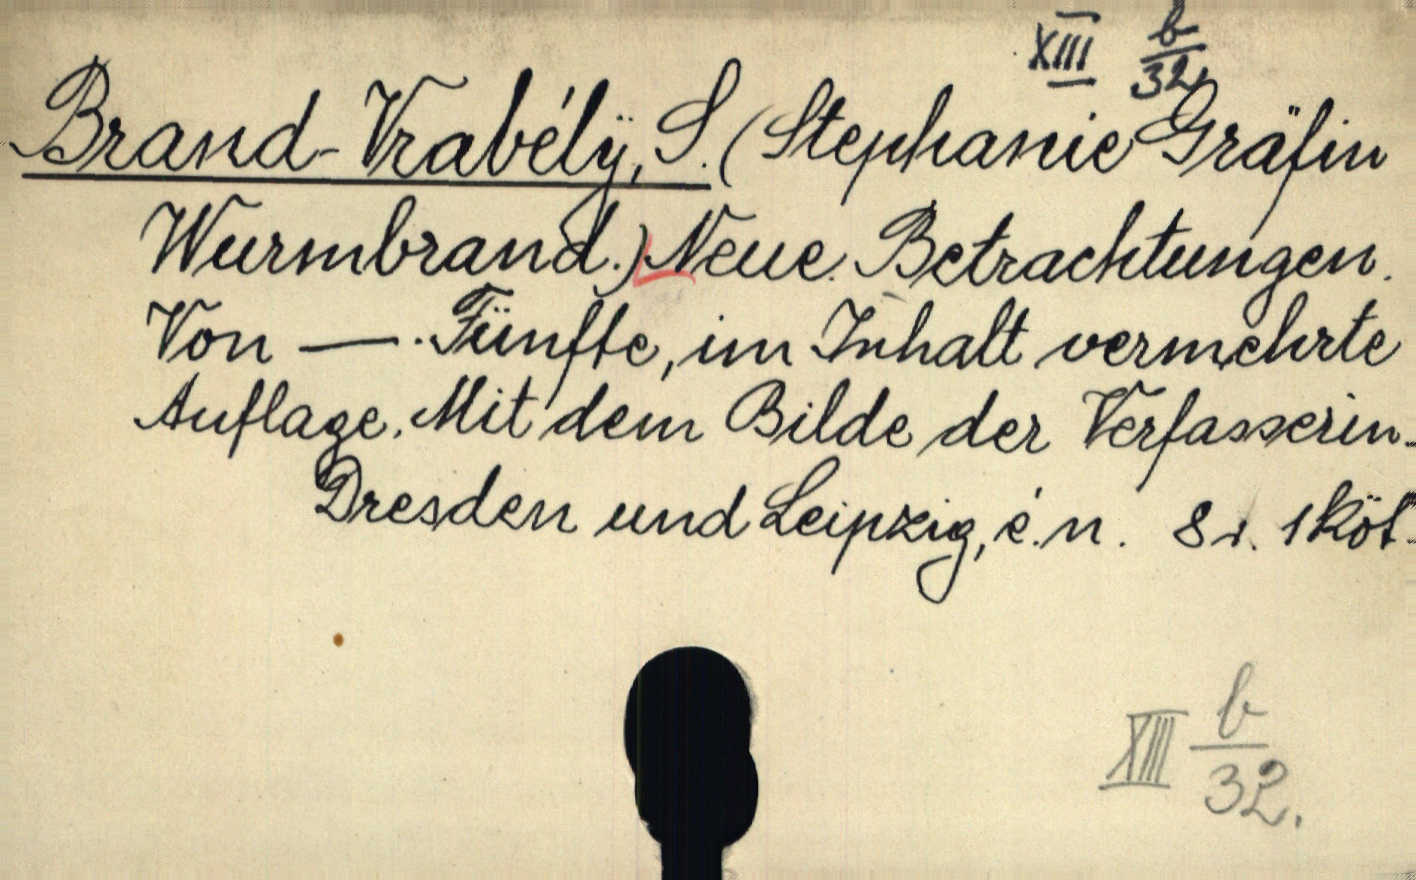 XIII b/32.
Brand-Vrabélÿ, S. (Stephanie Gräfin
Wurmbrand.) Neue Betrachtungen.
Von —. Fünfte, im Inhalt vermehrte
Auflage. Mit dem Bilde der Verfasserin.
Dresden und Leipzig, é. n. 8r. 1 köt.
XIII b/32.